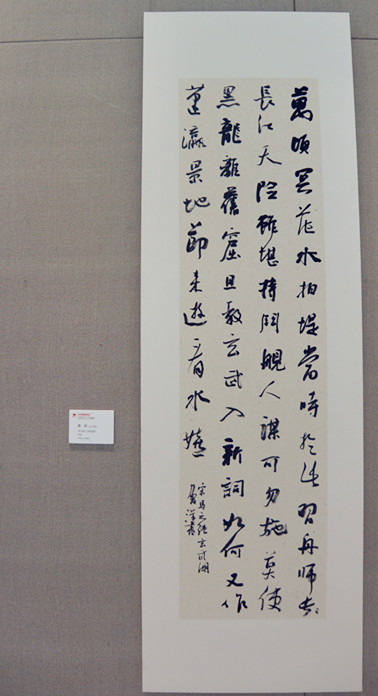 萬頃冥茫水拍堤當時於此習舟師
長江天险雖堪持鬥艦人謀可勿施莫使
黑龍離舊窟且教玄武入新詞如何又作
蓬瀛景地節来遊看水嬉
宋馬之純玄武湖
書